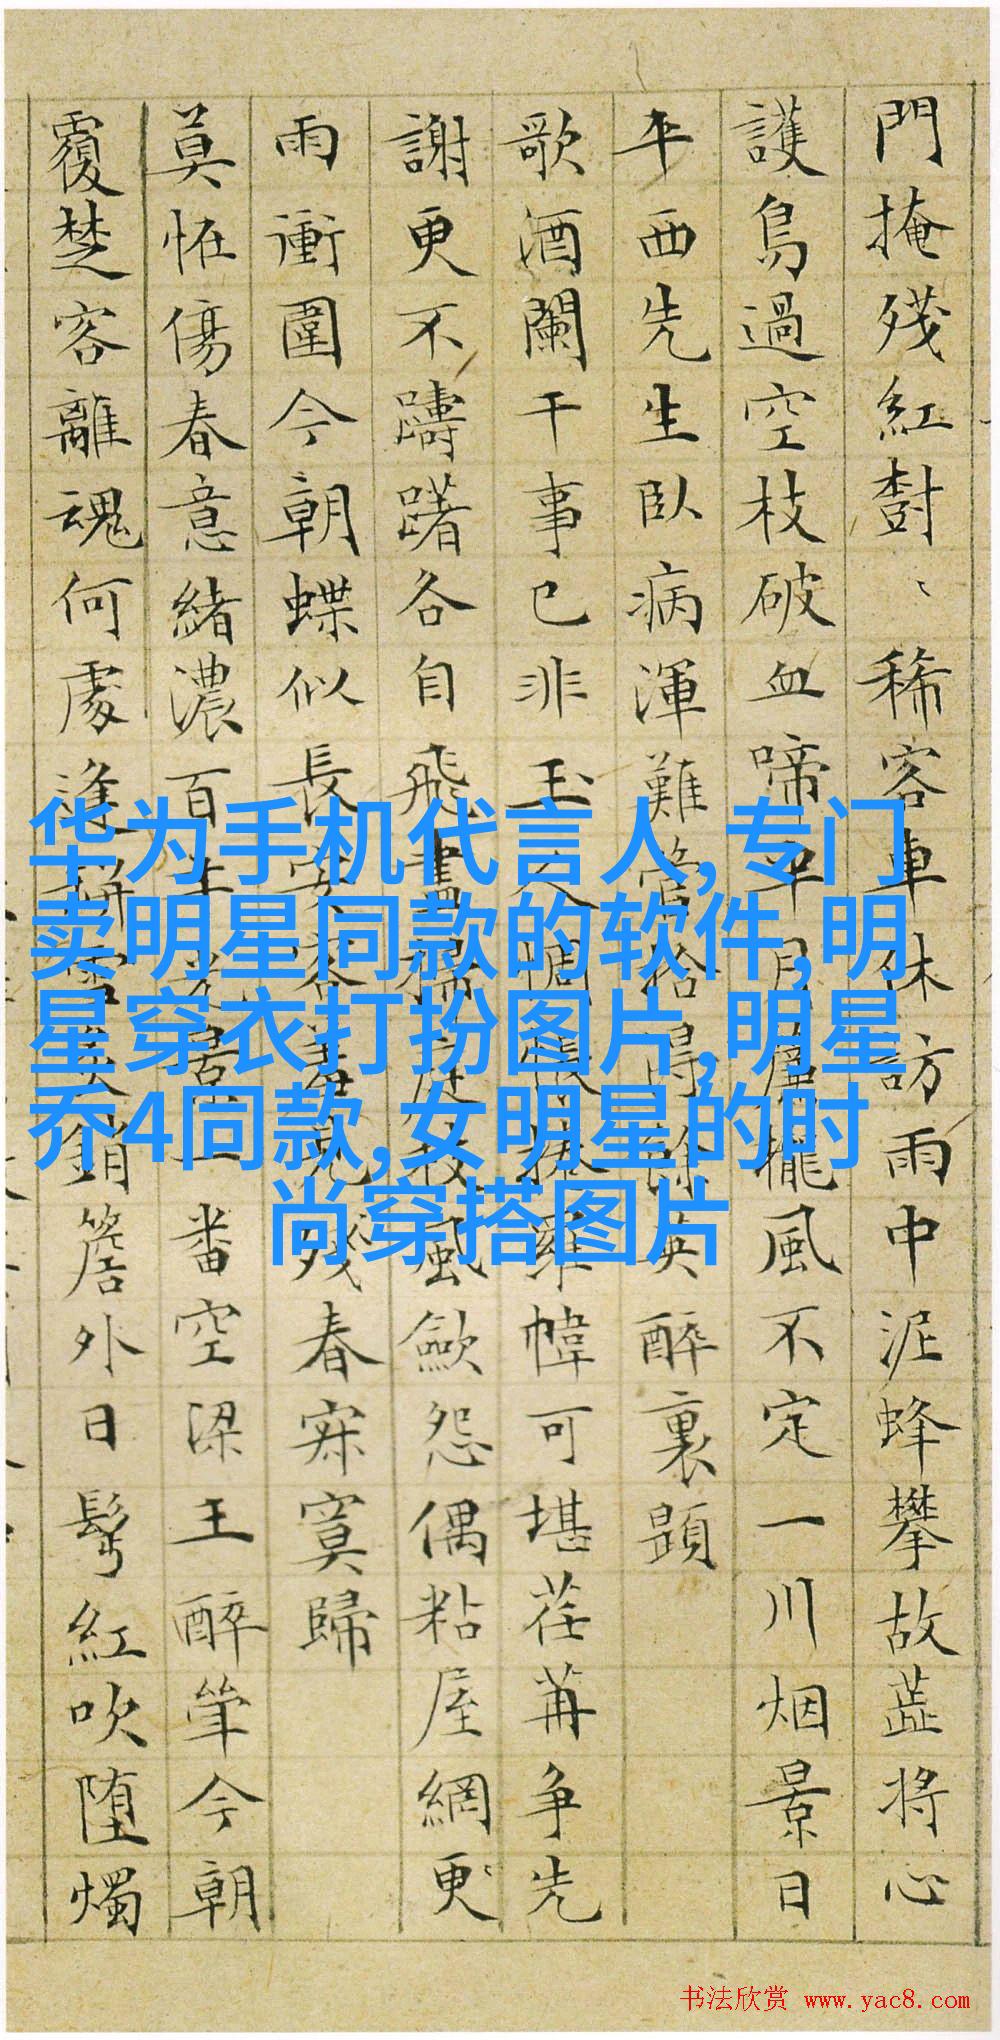 門掩殘紅樹〻稀客車休訪雨中泥蜂攀故蕋將心
護鳥過空枝破血啼月櫳風不定一川烟景日
平西先生臥病渾難管拾得餘英醉裏題
歌酒闌干事已非玉人惆幃可堪荏苒爭先
謝更不躊躇各自飛畫風歛怨偶粘屋網更
雨衝圍今朝蝶似長安客殘春寂寞歸
莫怪傷春意緒濃百年光景一番空梁王醉今朝
覆楚客離魂何處逢銷簷外日髩紅吹墮燭
华为手机代言人,专门
卖明星同款的软件,明
星穿衣打扮图片,明星
乔4同款,女明星的时
尚穿搭图片
书法欣赏 www.yac8.com